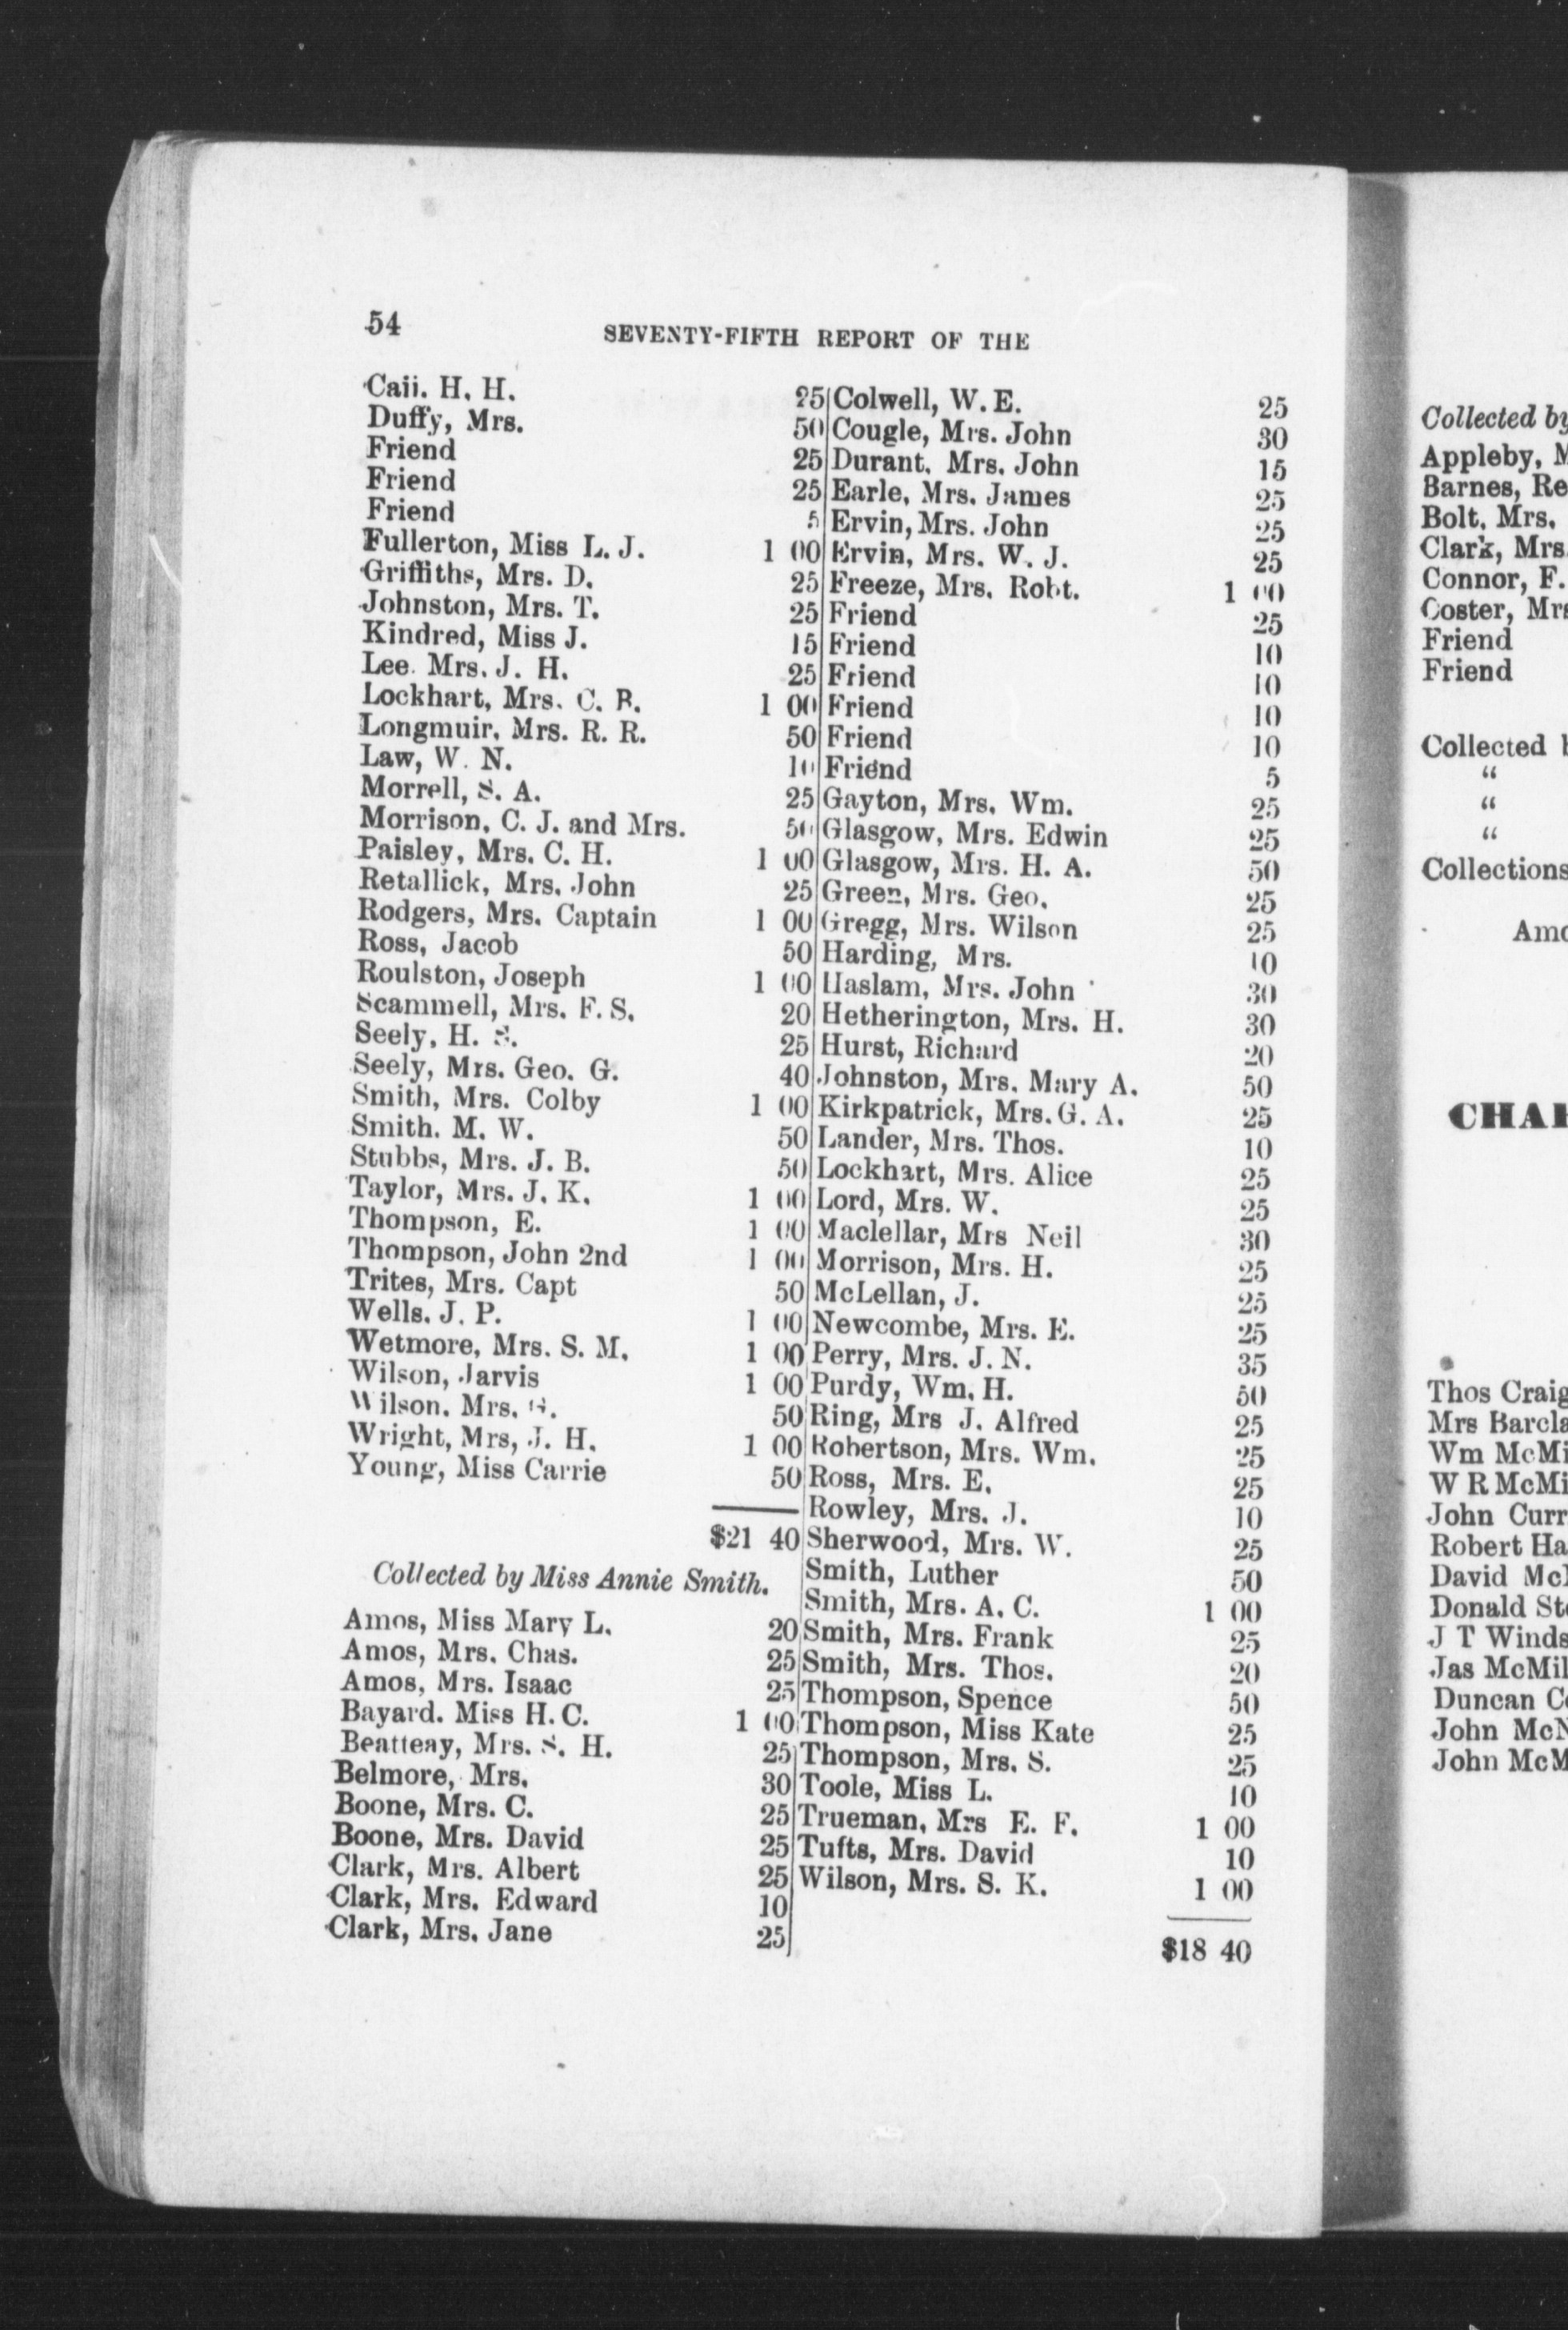 54 SEVENTY-FIFTH REPORT OF THE
Caii. H. H. 25
Duffy, Mrs. 50
Friend 25
Friend 25
Friend 5
Fullerton, Miss L. J. 1 00
Griffiths, Mrs. D. 25
Johnston, Mrs. T. 25
Kindred, Miss J. 15
Lee. Mrs. J. H. 25
Lockhart, Mrs. C. B. 1 00
Longmuir, Mrs. R. R. 50
Law, W. N. 10
Morrell, S. A. 25
Morrison, C. J. and Mrs. 50
Paisley, Mrs. C. H. 1 00
Retallick, Mrs. John 25
Rodgers, Mrs. Captain 1 00
Ross, Jacob 50
Roulston, Joseph 1 00
Scammell, Mrs. F. S. 20
Seely, H. S. 25
Seely, Mrs. Geo. G. 40
Smith, Mrs. Colby 1 00
Smith. M. W. 50
Stubbs, Mrs. J. B. 50
Taylor, Mrs. J. K. 1 00
Thompson, E. 1 00
Thompson, John 2nd 1 00
Trites, Mrs. Capt 50
Wells. J. P. 1 00
Wetmore, Mrs. S. M. 1 00
Wilson, Jarvis 1 00
Wilson. Mrs. 50
Wright, Mrs, J. H. 1 00
Young, Miss Carrie 50
$21 40
Collected by Miss Annie Smith.
Amos, Miss Mary L. 20
Amos, Mrs. Chas. 25
Amos, Mrs. Isaac 25
Bayard. Miss H. C. 1 00
Beatteay, Mrs. S. H. 25
Belmore, Mrs. 30
Boone, Mrs. C. 25
Boone, Mrs. David 25
Clark, Mrs. Albert 25
Clark, Mrs. Edward 10
Clark, Mrs. Jane 25
Colwell, W. E. 25
Cougle, Mrs. John 30
Durant. Mrs. John 15
Earle, Mrs. James 25
Ervin, Mrs. John 25
Ervin, Mrs. W. J. 25
Freeze, Mrs. Robt. 1 00
Friend 25
Friend 10
Friend 10
Friend 10
Friend 10
Friend 5
Gayton, Mrs. Wm. 25
Glasgow, Mrs. Edwin 25
Glasgow, Mrs. H. A. 50
Green, Mrs. Geo. 25
Gregg, Mrs. Wilson 25
Harding, Mrs. 10
Haslam, Mrs. John 30
Hetherington, Mrs. H. 30
Hurst, Richard 20
Johnston, Mrs. Mary A. 50
Kirkpatrick, Mrs. G. A. 25
Lander, Mrs. Thos. 10
Lockhart, Mrs. Alice 25
Lord, Mrs. W. 25
Maclellar, Mrs Neil 30
Morrison, Mrs. H. 25
McLellan, J. 25
Newcombe, Mrs. E. 25
Perry, Mrs. J. N. 35
Purdy, Wm. H. 50
Ring, Mrs J. Alfred 25
Robertson, Mrs. Wm. 25
Ross, Mrs. E. 25
Rowley, Mrs. J. 10
Sherwood, Mrs. W. 25
Smith, Luther 50
Smith, Mrs. A. C. 1 00
Smith, Mrs. Frank 25
Smith, Mrs. Thos. 20
Thompson, Spence 50
Thompson, Miss Kate 25
Thompson, Mrs. S. 25
Toole, Miss L. 10
Trueman, Mrs E. F. 1 00
Tufts, Mrs. David 10
Wilson, Mrs. S. K. 1 00
$18 40
Collected by
Appleby, M
Barnes, Re
Bolt. Mrs.
Clark, Mrs.
Connor, F.
Coster, Mrs
Friend
Friend
Collected
“
“
“
Collections
Amo
CHAR
Thos Craig
Mrs Barcla
Wm McMi
W R McMi
John Curr
Robert Ha
David Mc
Donald Ste
J T Winds
Jas McMil
Duncan C
John McN
John McM